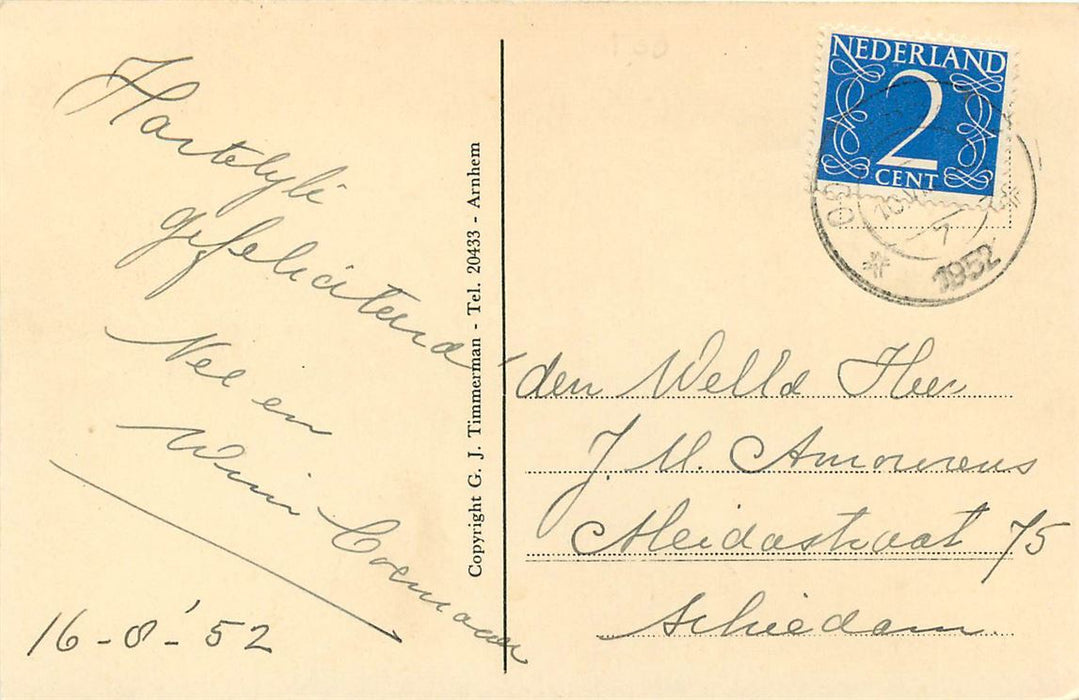 Hartelyk
gefeliciteerd
Nel en
Wim
16-8-'52
Copyright G. J. Timmerman - Tel. 20433 - Arnhem
NEDERLAND
2
CENT
1952
den Welld Heer
J. M. Amourens
Aleidastraat 75
Schiedam